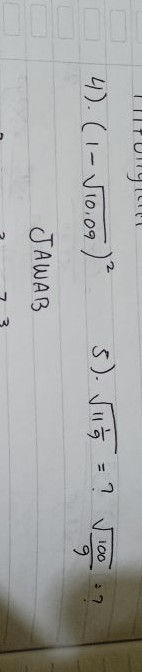 4). (1 - √10,09)²   5). √11 1/9 = ? √100/9 = ?
JAWAB